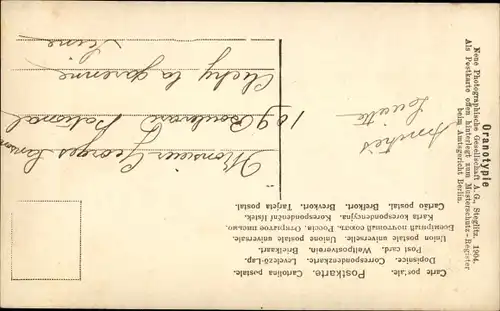 Carte postale. Cartolina postale.
Postkarte.
Dopisnice. Correspondenzkarte. Levelező-Lap.
Post card. Weltpostverein. Briefkaart.
Union postale universelle. Unione postale universale.
Всемірный почтовый союзъ. Россія. Открытое письмо.
Karta korespondencyjna. Korespondentní lístek.
Cartão postal. Brefkort. Brevkort. Tarjeta postal.
Monsieur Georges
109 Boulevard National
Clichy la garenne
Seine
Amitiés
Lucette
Oranotypie
Neue Photographische Gesellschaft A.G., Steglitz. 1904.
Als Postkarte offen hinterlegt zum Musterschutz-Register
beim Amtsgericht Berlin.